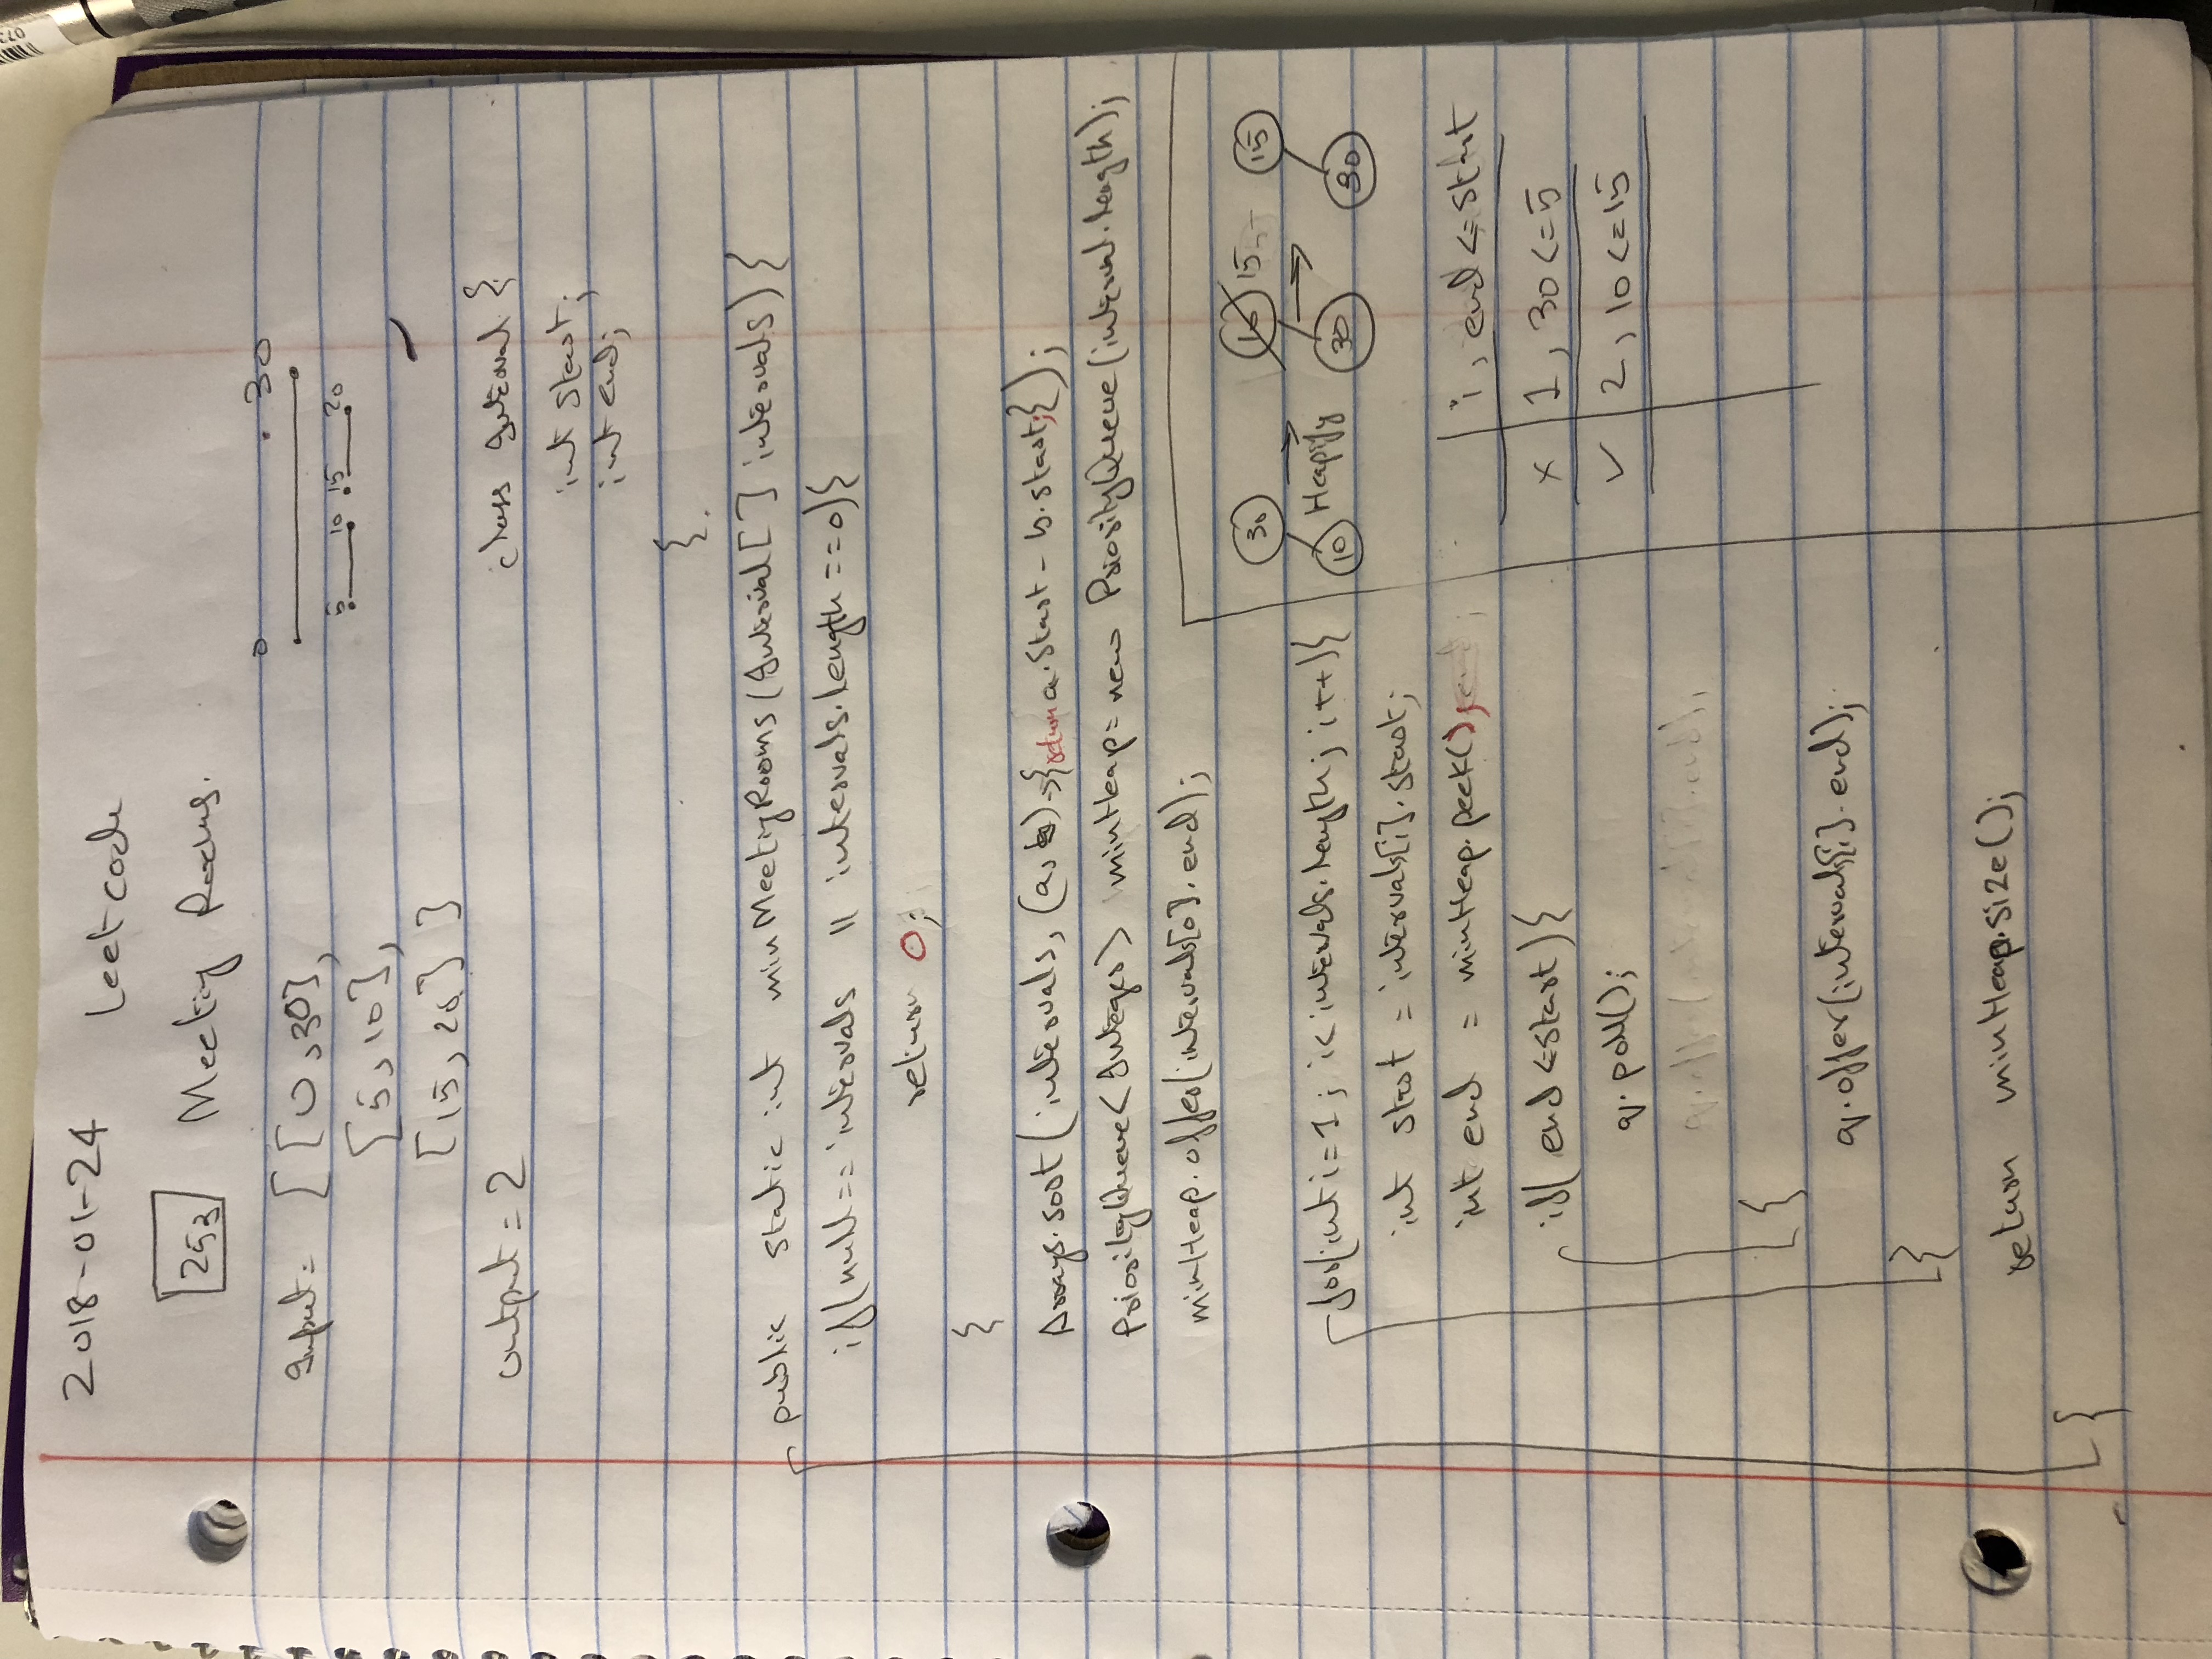 2018-01-24
Leetcode
253 Meeting Rooms.
Input = [ [0,30],
[5,10],
[15,20] ]
output = 2
0 30
5 10 15 20
class Interval {
int start;
int end;
}
public static int minMeetingRooms(Interval[] intervals){
if(null == intervals || intervals.length ==0){
return 0;
}
Arrays.sort(intervals, (a,b)->{return a.start - b.start;});
PriorityQueue<Integer> minHeap = new PriorityQueue(interval.length);
minHeap.offer(intervals[0].end);
for(int i=1; i<intervals.length; i++){
int start = intervals[i].start;
int end = minHeap.peek();
if( end <=start){
q.poll();
}
q.offer(intervals[i].end);
}
return minHeap.size();
}
30 10 15 15
Heapify
10 30 30
i, end <= start
x 1, 30<=5
✓ 2, 10<=15